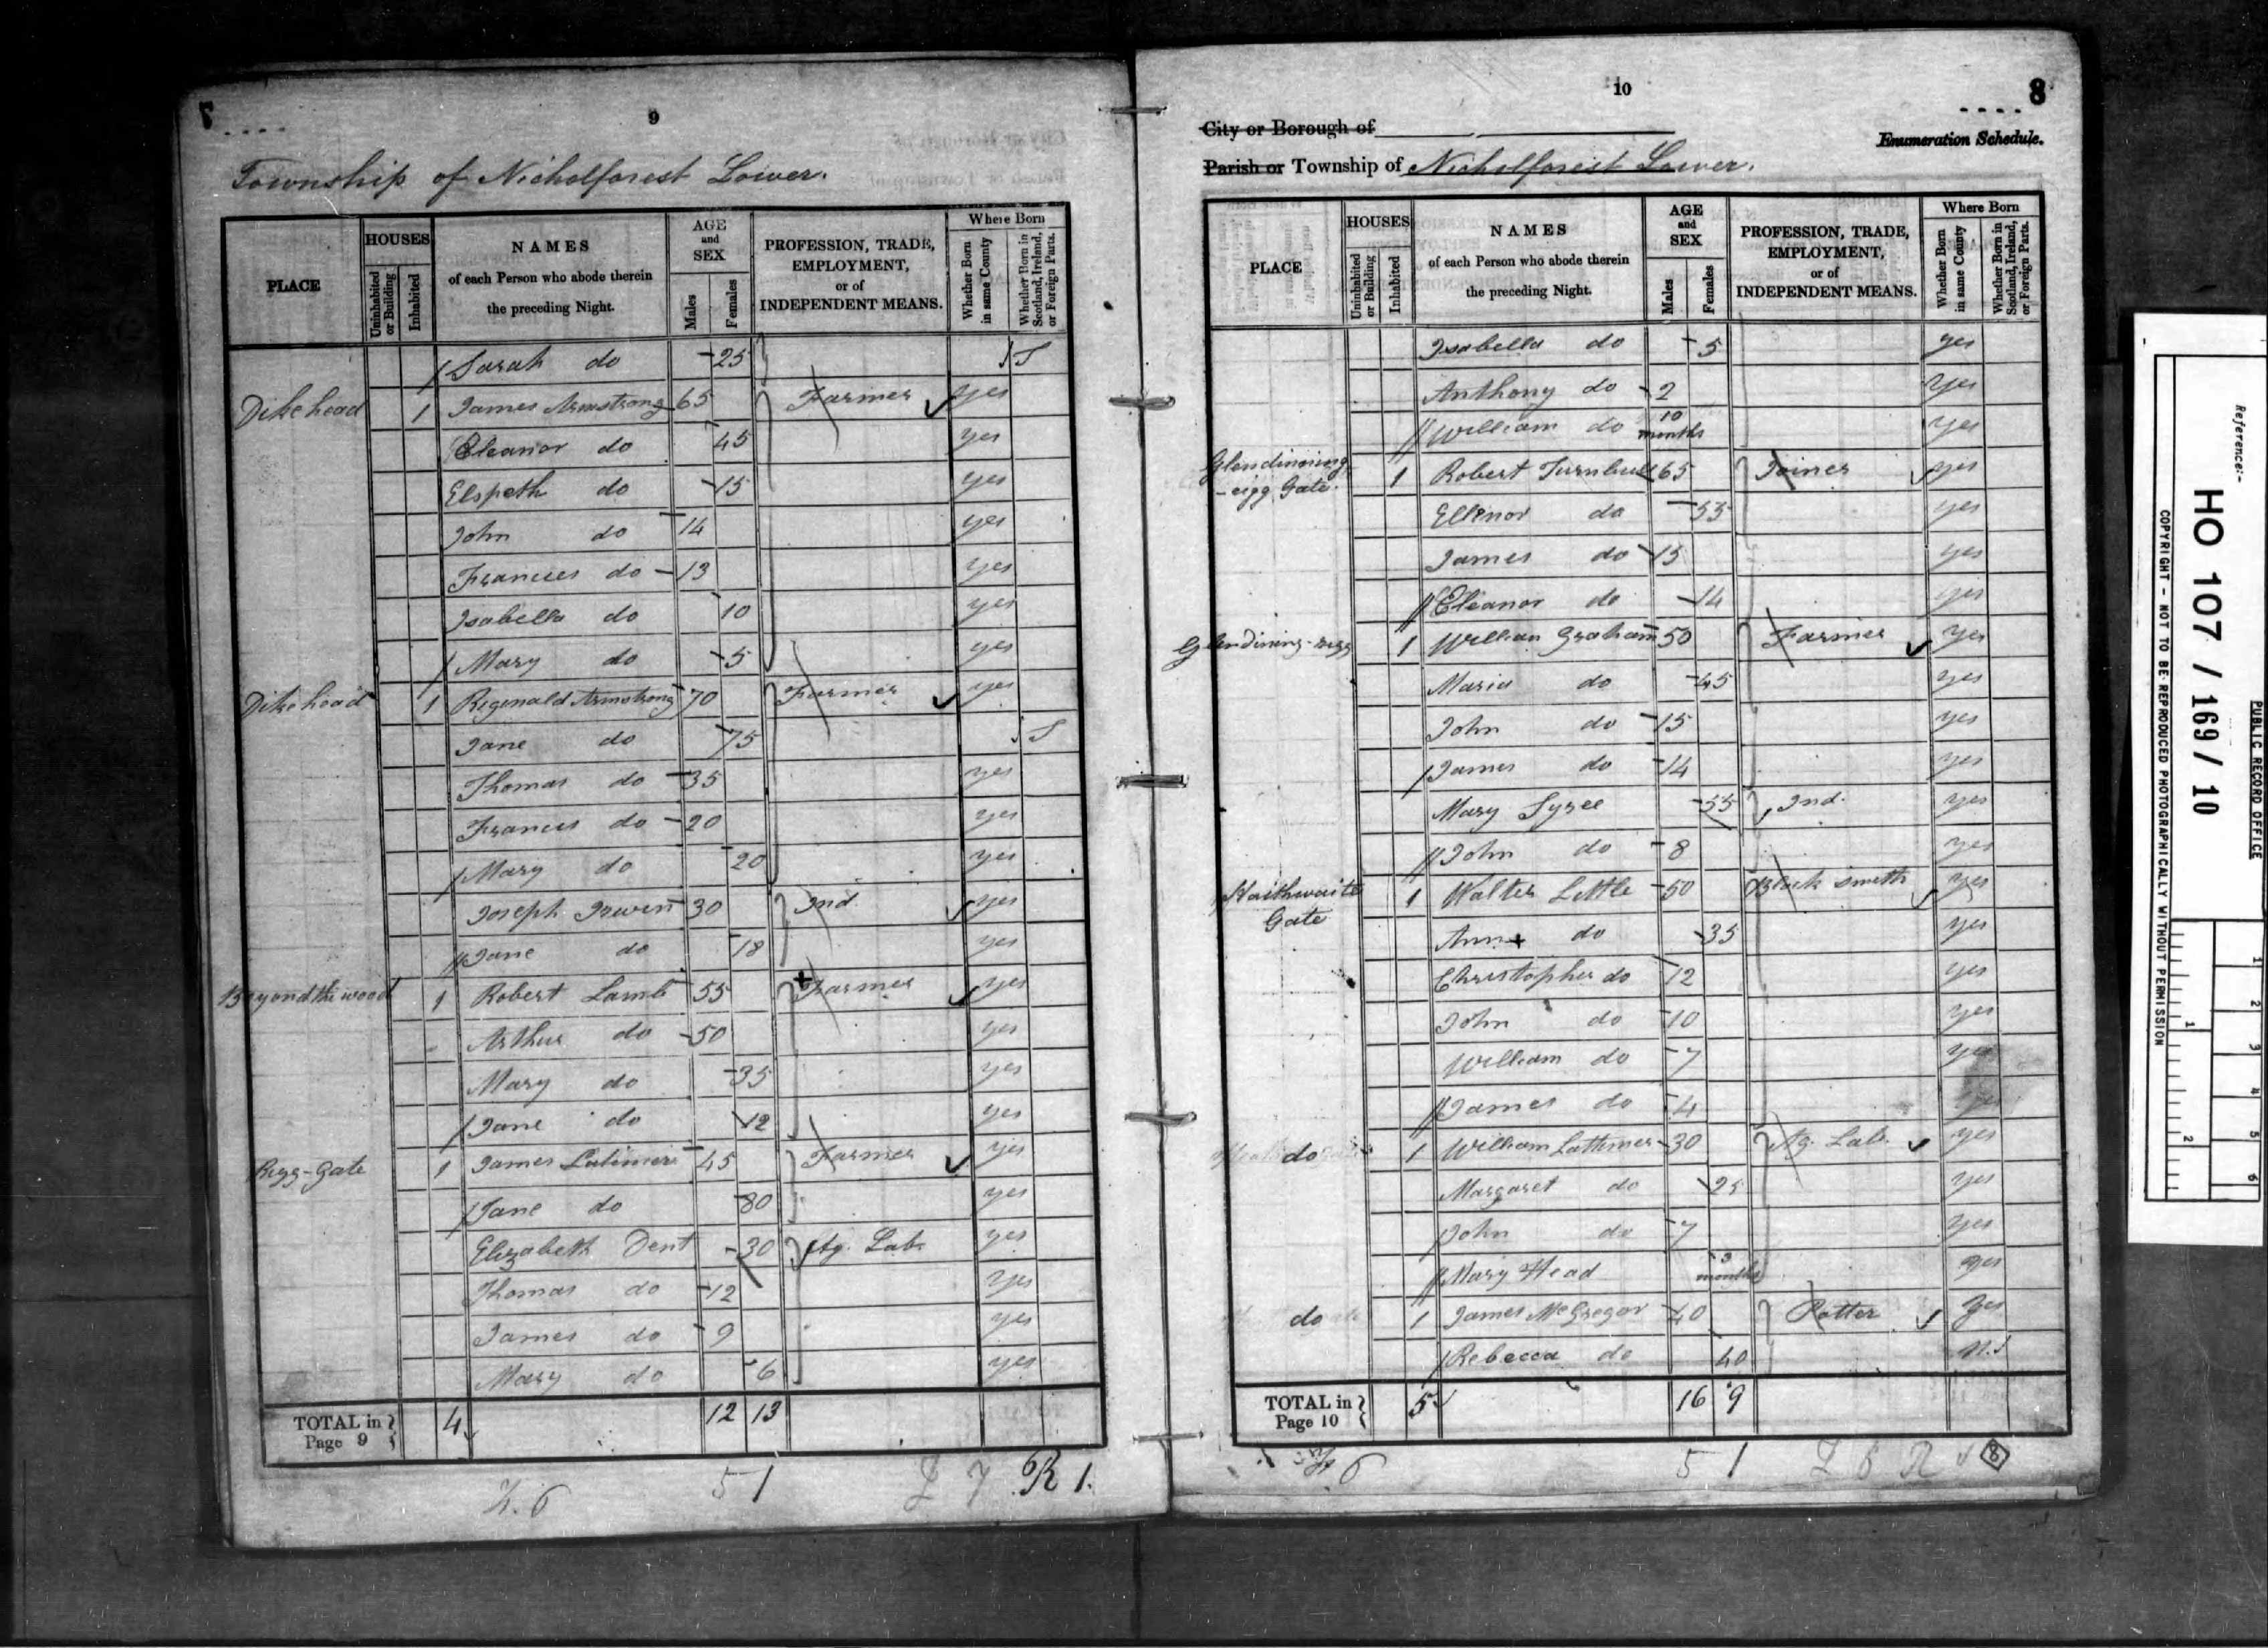 7
9
Township of Nicholforest Lower.
PLACE HOUSES NAMES of each Person who abode therein the preceding Night. AGE and SEX PROFESSION, TRADE, EMPLOYMENT, or of INDEPENDENT MEANS. Where Born
Uninhabited or Building Inhabited Males Females Whether Born in same County Whether Born in Scotland, Ireland, or Foreign Parts.
Sarah do 25 S
Dikehead 1 James Armstrong 65 Farmer yes
Eleanor do 45 yes
Elspeth do 15 yes
John do 14 yes
Frances do 13 yes
Isabella do 10 yes
Mary do 5 yes
Dikehead 1 Reginald Armstrong 70 Farmer yes
Jane do 75 S
Thomas do 35 yes
Francis do 20 yes
Mary do 20 yes
Joseph Irwin 30 Ind. yes
Jane do 18 yes
Beyond the wood 1 Robert Lamb 55 Farmer yes
Arthur do 50 yes
Mary do 35 yes
Jane do 12 yes
Rigg-Gate 1 James Latimer 45 Farmer yes
Jane do 80 yes
Elizabeth Dent 30 Ag. Lab. yes
Thomas do 12 yes
James do 9 yes
Mary do 6 yes
TOTAL in Page 9 4 12 13
51
R 1.
10
8
City or Borough of
Enumeration Schedule.
Parish or Township of Nicholforest Lower.
PLACE HOUSES NAMES of each Person who abode therein the preceding Night. AGE and SEX PROFESSION, TRADE, EMPLOYMENT, or of INDEPENDENT MEANS. Where Born
Uninhabited or Building Inhabited Males Females Whether Born in same County Whether Born in Scotland, Ireland, or Foreign Parts.
Isabella do 5 yes
Anthony do 2 yes
William do 10 months yes
Glendinning 1 Robert Turnbull 65 Joiner yes
-rigg Gate.
Ellenor do 55 yes
James do 15 yes
Eleanor do 14 yes
Glendining-rigg 1 William Graham 50 Farmer yes
Maria do 45 yes
John do 15 yes
James do 14 yes
Mary 55 Ind. yes
John do 8 yes
Haithwaite Gate 1 Walter Little 50 Black smith yes
Ann do 35 yes
Christopher do 12 yes
John do 10 yes
William do 7 yes
James do 4 yes
do 1 William Lattimer 30 Ag. Lab. yes
Margaret do 25 yes
John do 7 yes
Mary Head 3 months yes
do 1 James McGregor 40 Potter yes
Rebecca do 40 N.
TOTAL in Page 10 5 16 9
6
51
8
Reference:-
HO 107 / 169 / 10
PUBLIC RECORD OFFICE
COPYRIGHT - NOT TO BE REPRODUCED PHOTOGRAPHICALLY WITHOUT PERMISSION
1 2 3 4 5 6
1 2